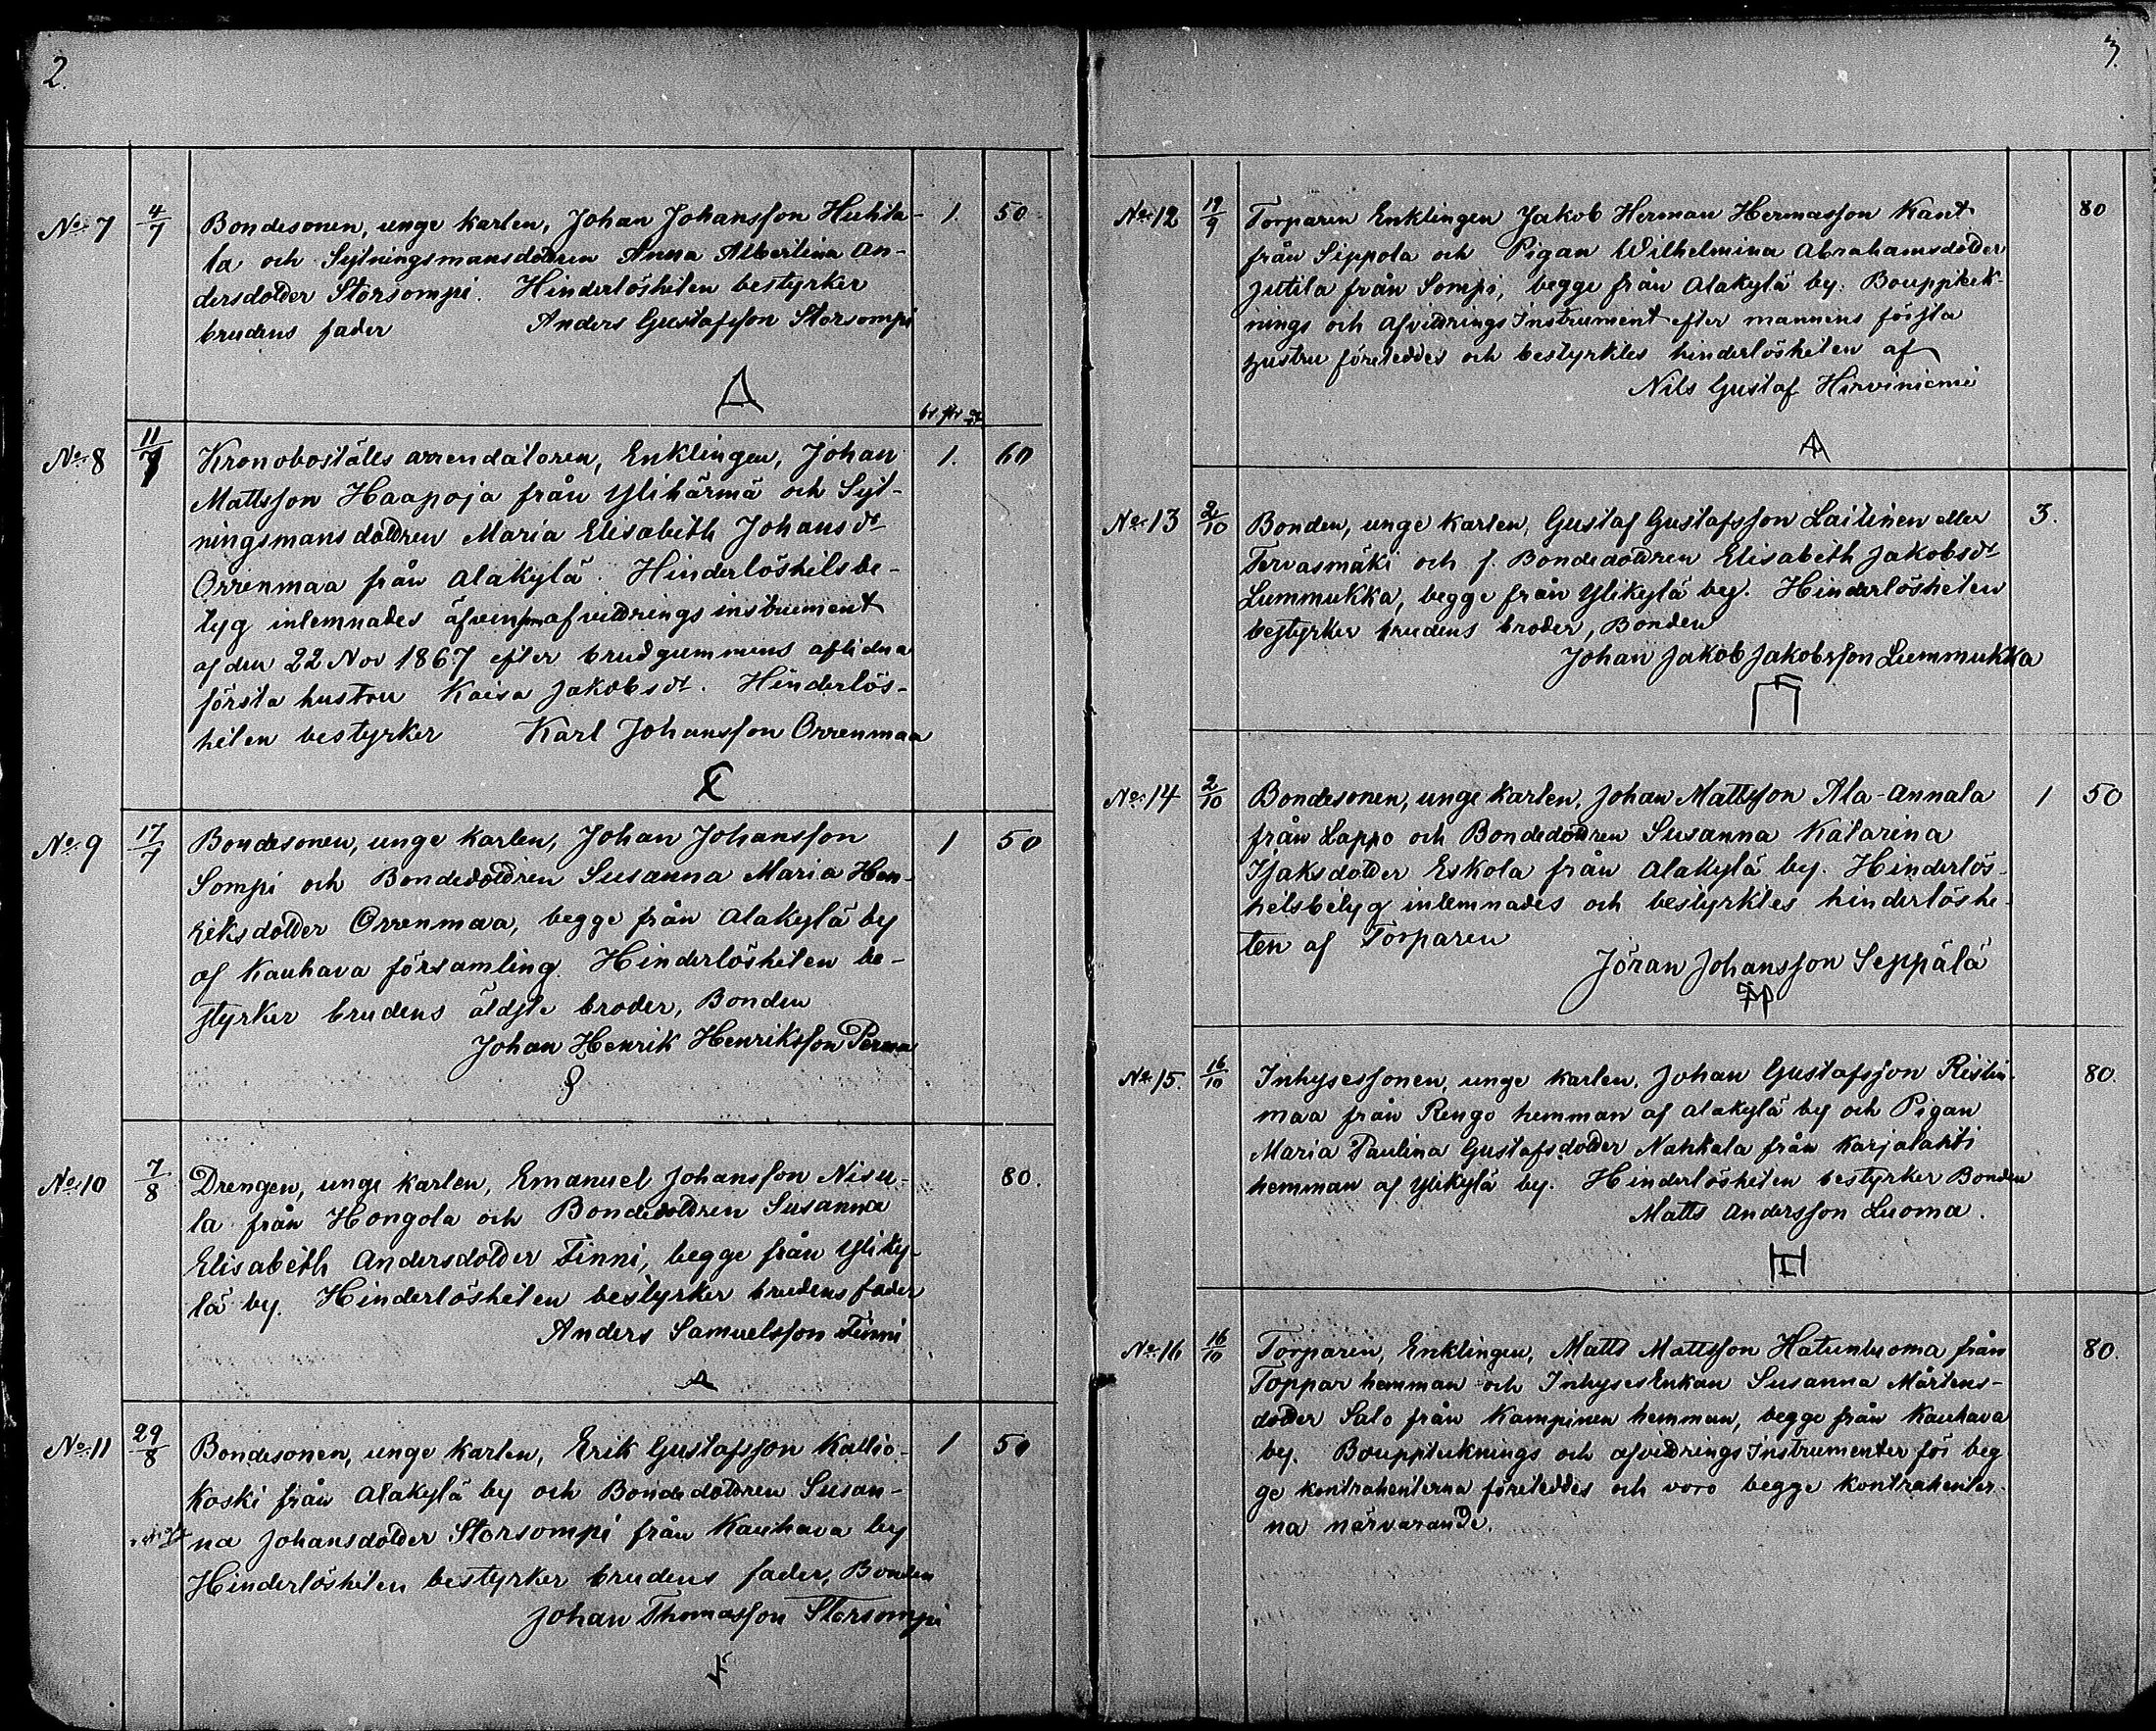 2.
No 7 4/7 Bondesonen, unge karlen, Johan Johansson Huhta- 1. 50
la och Sytningsmansdottren Anna Albertina An-
dersdotter Storsompi. Hinderlösheten bestyrker
brudens fader Anders Gustafsson Storsompi
No 8 11/7 Kronoboställs arrendatoren, Enklingen, Johan 1. 60
Mattsson Haapoja från Ylihärmä och Syt-
ningsmansdottren Maria Elisabeth Johansdr
Orrenmaa från Alakylä. Hinderlöshetsbe-
tyg inlemnades äfvensom afvittringsinstrument
af den 22 Nov 1867 efter brudgummens aflidna
första hustru Kaisa Jakobsdr. Hinderlös-
heten bestyrker Karl Johansson Orrenmaa
No 9 17/7 Bondesonen, unge karlen, Johan Johansson 1 50
Sompi och Bondedottren Susanna Maria Hen-
riksdotter Orrenmaa, begge från Alakylä by
af Kauhava församling. Hinderlösheten be-
styrker brudens äldste broder, Bonden
Johan Henrik Henriksson
No 10 7/8 Drengen, unge karlen, Emanuel Johansson Nisu- 80.
la från Hongola och Bondedottren Susanna
Elisabeth Andersdotter Finni, begge från Yliky-
lä by. Hinderlösheten bestyrker brudens fader
Anders Samuelsson Finni
No 11 29/8 Bondesonen, unge karlen, Erik Gustafsson Kallio- 1 50
koski från Alakylä by och Bondedottren Susan-
na Johansdotter Storsompi från Kauhava by
Hinderlösheten bestyrker brudens fader, Bonden
Johan Thomasson Storsompi
3.
No 12 19/9 Torparen Enklingen Jakob Herman Hermasson Kant 80
från Sippola och Pigan Wilhelmina Abrahamsdotter
Jutila från Sompi, begge från Alakylä by. Boupptek-
nings och Afvittrings Instrument efter mannens första
hustru företeddes och bestyrktes hinderlösheten af
Nils Gustaf Hirviniemi
No 13 2/10 Bonden, unge karlen, Gustaf Gustafsson Laitinen eller 3.
Tervasmäki och f. Bondedottren Elisabeth Jakobsdr
Lummukka, begge från Ylikylä by. Hinderlösheten
bestyrker brudens broder, Bonden
Johan Jakob Jakobsson Lummukka
No 14 2/10 Bondesonen, unge karlen, Johan Mattsson Ala-Annala 1 50
från Lappo och Bondedottren Susanna Katarina
Isaksdotter Eskola från Alakylä by. Hinderlös-
hetsbetyg inlemnades och bestyrktes hinderlöshe-
ten af Torparen
Jöran Johansson Seppälä
No 15. 16/10 Inhysessonen, unge karlen, Johan Gustafsson Ristin- 80.
maa från Rengo hemman af Alakylä by och Pigan
Maria Paulina Gustafsdotter Nahkala från Karjalahti
hemman af Ylikylä by. Hinderlösheten bestyrker Bonden
Matts Andersson Luoma.
No 16 16/10 Torparen, Enklingen, Matts Mattsson Hatunluoma från 80.
Toppar hemman och Inhyses Enkan Susanna Mårtens-
dotter Salo från Kampinen hemman, begge från Kauhava
by. Bouppteknings och afvittrings Instrumenter för beg
ge kontrahenterna företeddes och voro begge kontrahenter-
na närvarande.